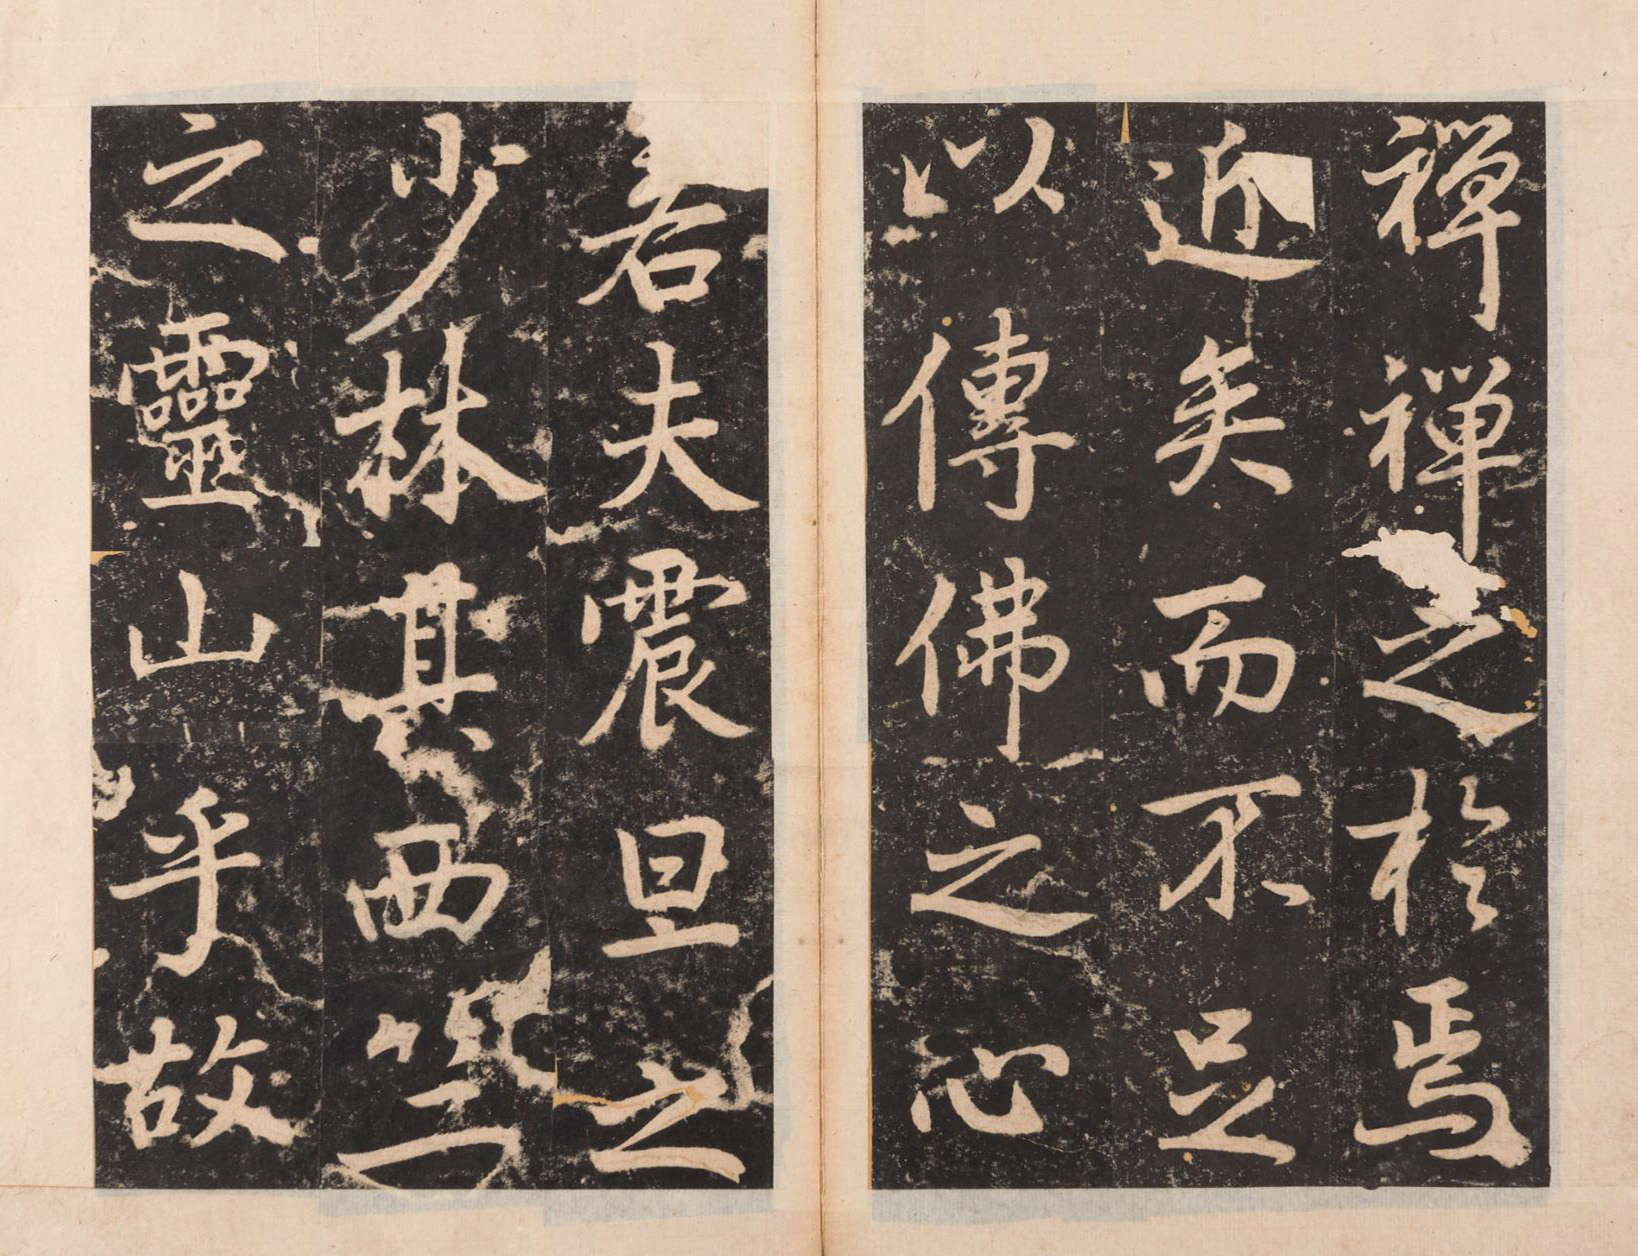 禪禪之於焉
近矣而不足
以傳佛之心
若夫震旦之
少林其西竺
之靈山乎故